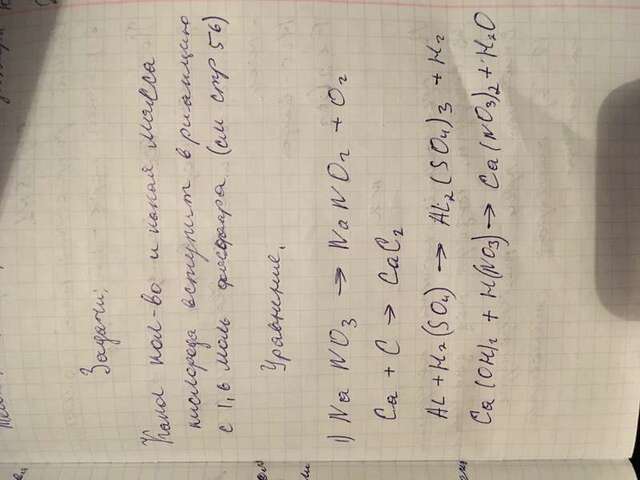 Задачи:
Какое кол-во и какая масса
кислорода вступит в реакцию
с 1,6 моль фосфора (см стр 56)
Уравнение.
1) Na NO3 → NaNO2 + O2
Ca + C → CaC2
AL + H2(SO4) → AL2(SO4)3 + H2
Ca(OH)2 + H(NO3) → Ca(NO3)2 + H2O